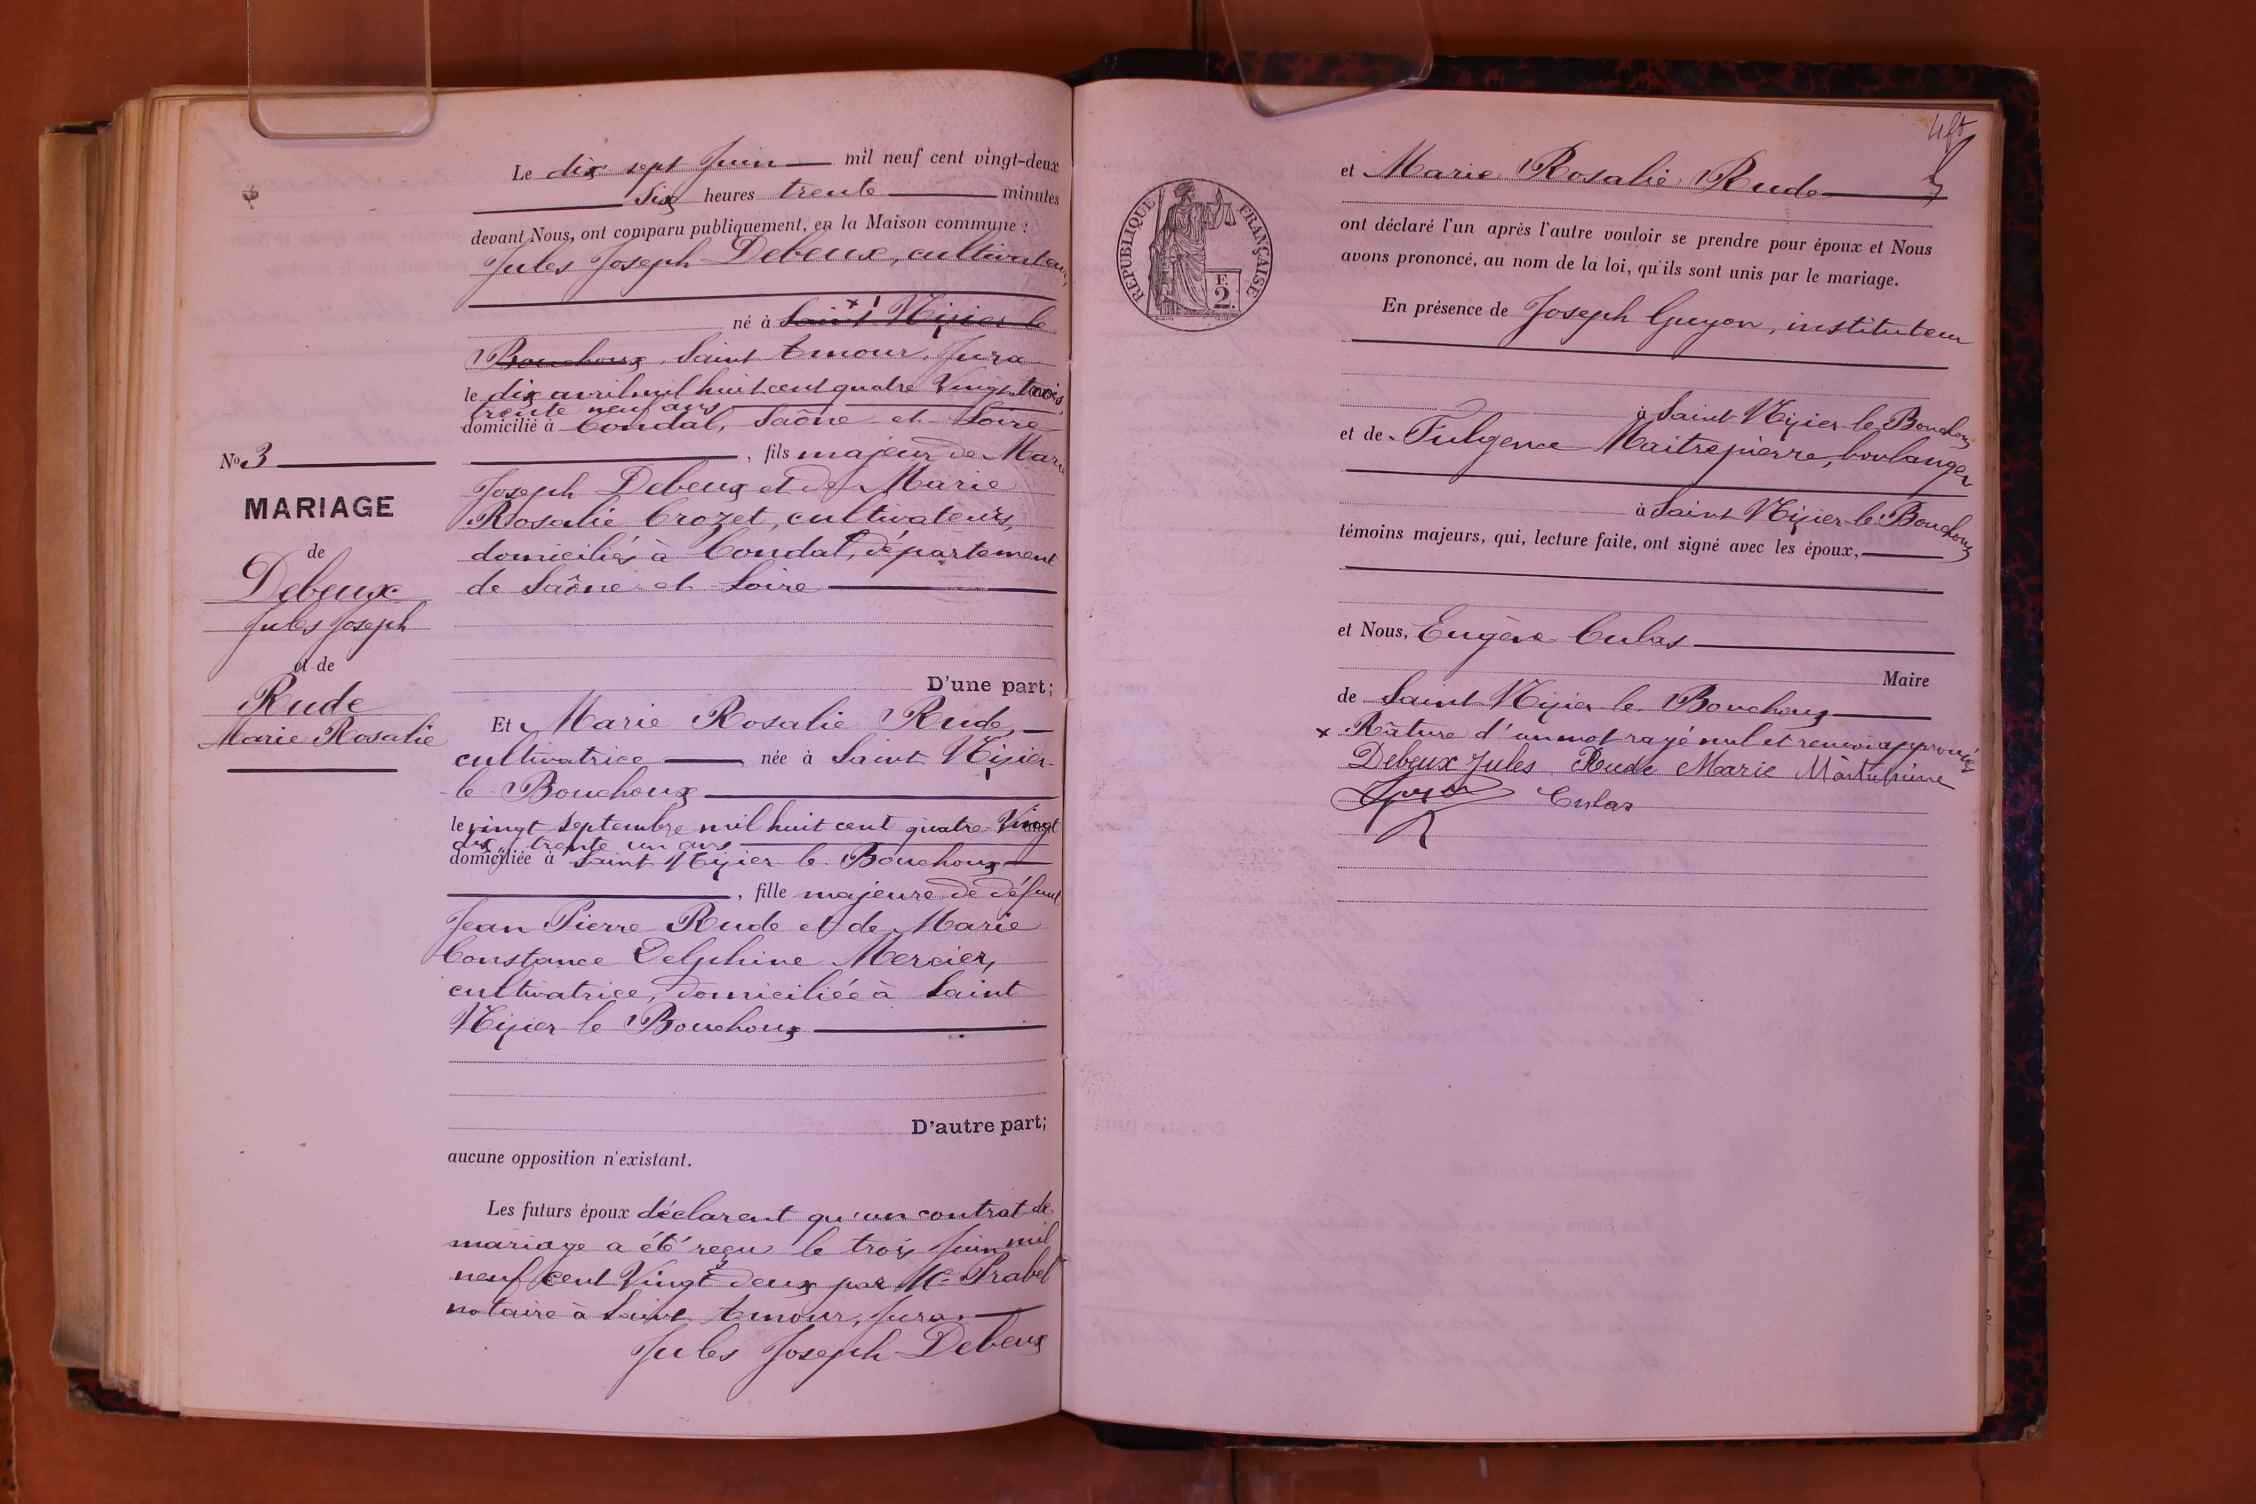 Le dix sept Juin mil neuf cent vingt-deux
Six heures trente minutes
devant Nous, ont comparu publiquement, en la Maison commune :
Jules Joseph Debeux, cultivateur
né à Saint Nizier le
Bouchoux, Saint Amour, Jura
le dix avril mil huit cent quatre Vingt trois,
trente neuf ans
domicilié à Condal, Saône et Loire
, fils majeur de Marie
Joseph Debeux et de Marie
Rosalie Crozet, cultivateurs,
domiciliés à Condal, département
de Saône et Loire
No 3
MARIAGE
de
Debeux
Jules Joseph
et de
Rude
Marie Rosalie
D'une part;
Et Marie Rosalie Rude,
cultivatrice née à Saint Nizier
le Bouchoux
le vingt Septembre mil huit cent quatre Vingt
dix, trente un ans
domiciliée à Saint Nizier le Bouchoux
, fille majeure de défunt
Jean Pierre Rude et de Marie
Constance Delphine Mercier,
cultivatrice, domiciliée à Saint
Nizier le Bouchoux
D'autre part;
aucune opposition n'existant.
Les futurs époux déclarent qu'un contrat de
mariage a été reçu le trois Juin mil
neuf cent Vingt deux par Me Prabel
notaire à Saint Amour, Jura.
Jules Joseph Debeux
RÉPUBLIQUE FRANÇAISE
F.
2.
et Marie Rosalie Rude
ont déclaré l'un après l'autre vouloir se prendre pour époux et Nous
avons prononcé, au nom de la loi, qu'ils sont unis par le mariage.
En présence de Joseph Guyon, instituteur
à Saint Nizier le Bouchoux
et de Fulgence Maitrepierre, boulanger
à Saint Nizier le Bouchoux
témoins majeurs, qui, lecture faite, ont signé avec les époux,
et Nous, Eugène Culas
Maire
de Saint Nizier le Bouchoux
x Râture d'un mot rayé nul et renvoi approuvés
Debeux Jules Rude Marie
Culas